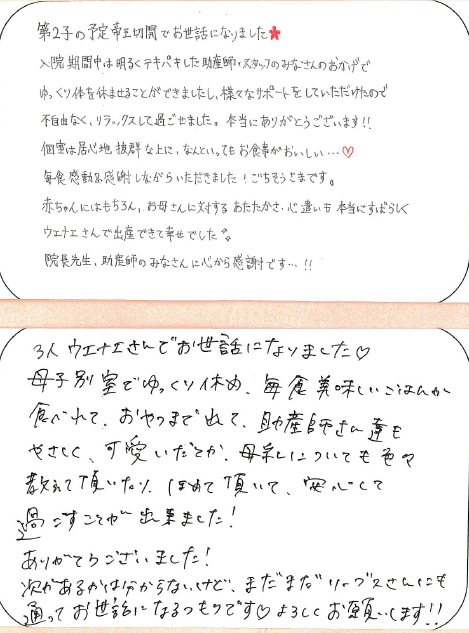 第2子の予定帝王切開でお世話になりました
入院期間中は明るくテキパキした助産師・スタッフのみなさんのおかげで
ゆっくり体を休ませることができましたし、様々なサポートをしていただけたので
不自由なく、リラックスして過ごせました。本当にありがとうございます!!
個室は居心地抜群な上に、なんといってもお食事がおいしい…♡
毎食感動&感謝しながらいただきました!ごちそうさまです。
赤ちゃんにはもちろん、お母さんに対するあたたかさ・心遣いも本当にすばらしく
ウエナエさんで出産できて幸せでした
院長先生、助産師のみなさんに心から感謝です…!!
3人ウエナエさんでお世話になりました♡
母子別室でゆっくり休め、毎食美味しいごはんが
食べれて、おやつまで出て、助産師さん達も
やさしく、可愛いだとか、母乳についても色々
教えて頂いたり、ほめて頂いて、安心して
過ごすことが出来ました!
ありがとうございました!
次があるかは分からないけど、まだまだリーブスさんにも
通ってお世話になるつもりです♡よろしくお願いします!!